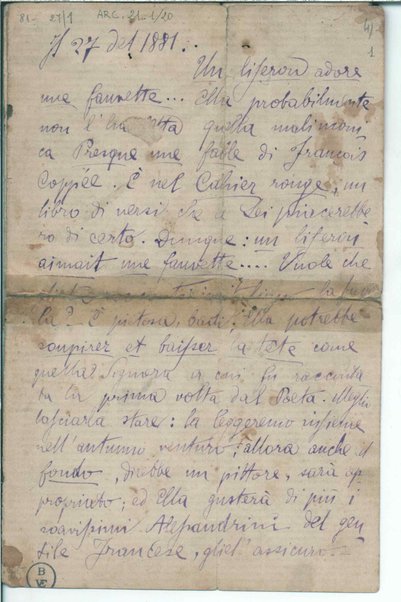 81- 27/1 ARC. 21-I/20
4/
1
Il 27 del 1881..
Un liseron adore
une fauvette... Ella probabilmente
non l'ha letta quella malinconi
ca Presque une fable di François
Coppée. È nel Cahier rouge, un
libro di versi che a Lei piacerebbe
ro di certo. Dunque: un liseron
aimait une fauvette.... Vuole che
la
la? È pietosa, badi! Ella potrebbe
soupirer et baisser la tête come
quella Signora a cui fu racconta
ta la prima volta dal Poeta. Meglio
lasciarla stare: la leggeremo insieme
nell'autunno venturo; allora anche il
fondo, direbbe un pittore, sarà ap
propriato; ed Ella gusterà di più i
soavissimi Alessandrini del gen
tile Francese, gliel'assicuro.
B
VE